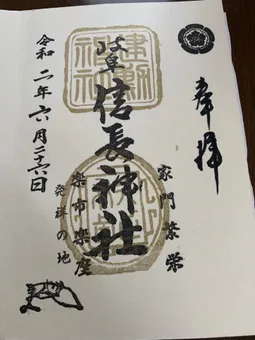 奉拝
家門繁栄
岐阜
信長神社
楽市楽座
発祥の地
令和二年六月二十六日